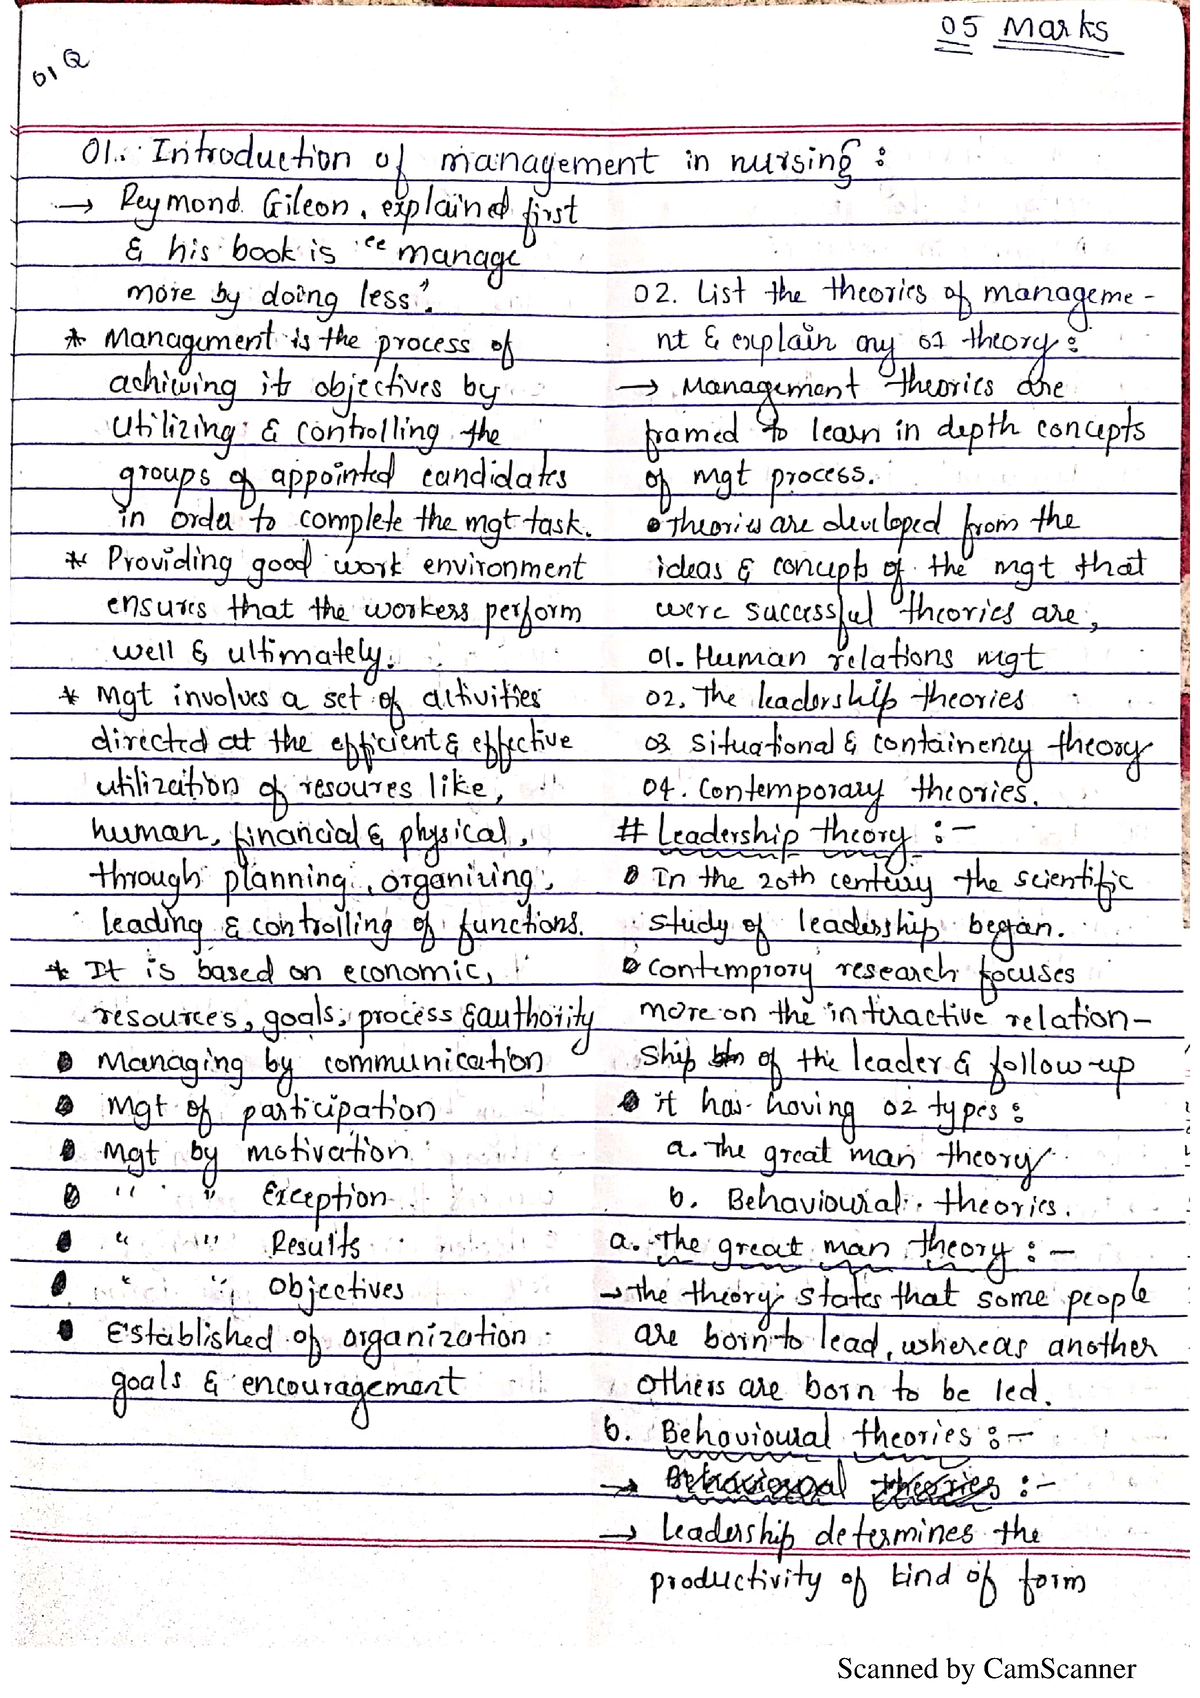 05 Marks
01 Q
01. Introduction of management in nursing :
→ Reymond Gileon, explained first
& his book is “manage
more by doing less”.
* Management is the process of
achiwing its objectives by
utilizing & controlling the
groups of appointed candidates
in order to complete the mgt task.
* Providing good work environment
ensures that the workers perform
well & ultimately.
* Mgt involves a set of activities
directed at the efficient & effective
utilization of resoures like,
human, financial & physical,
through planning, organizing,
leading & controlling of functions.
* It is based on economic,
resources, goals, process & authority
• Managing by communication
• Mgt of participation
• Mgt by motivation
• " " Exception
• " " Results
• " " Objectives
• Established of organization
goals & encouragement
02. List the theories of manageme-
nt & explain any 01 theory :
→ Management theories are
framed to learn in depth concepts
of mgt process.
• Theories are developed from the
ideas & concepts of the mgt that
were successful theories are,
01. Human relations mgt
02. The leadership theories
03 Situational & containency theory
04. Contemporary theories.
# Leadership theory :-
• In the 20th century the scientific
study of leadership began.
• Contemprory research focuses
more on the interactive relation-
ship of the leader & follow-up
• it has having 02 types :
a. The great man theory
b. Behavioural theories.
a. The great man theory :-
→ the theory states that some people
are born to lead, whereas another
others are born to be led.
b. Behavioural theories :-
→ Behavioural theories :-
→ Leadership determines the
productivity of kind of form
Scanned by CamScanner